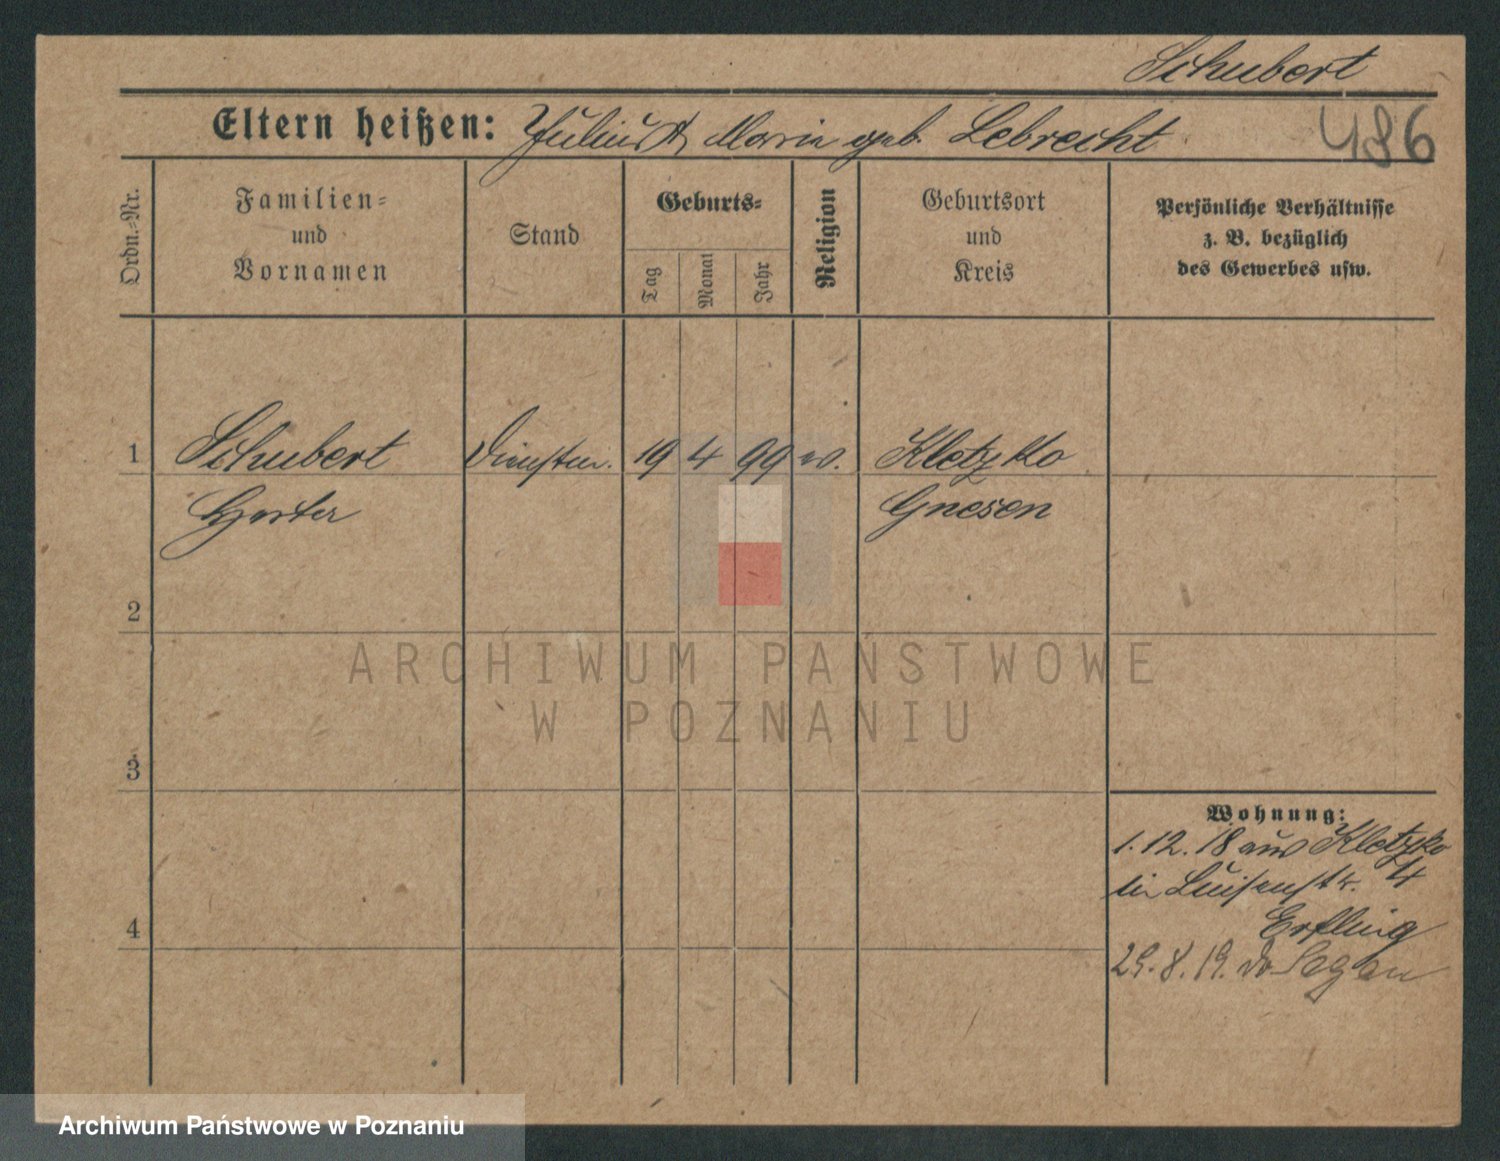 Schubert
Eltern heißen: Julius †, Marie geb. Lebrecht
486
Ordn.-Nr.
Familien-
und
Vornamen
Stand
Geburts-
Tag
Monat
Jahr
Religion
Geburtsort
und
Kreis
Persönliche Verhältnisse
z. B. bezüglich
des Gewerbes usw.
1 Schubert 19 4 99 Kletzko
Gnesen
2
ARCHIWUM PAŃSTWOWE
W POZNANIU
3
Wohnung:
1.12.18 aus Kletzko
in Luisenstr. 4
Erfling
29.8.19.
4
Archiwum Państwowe w Poznaniu